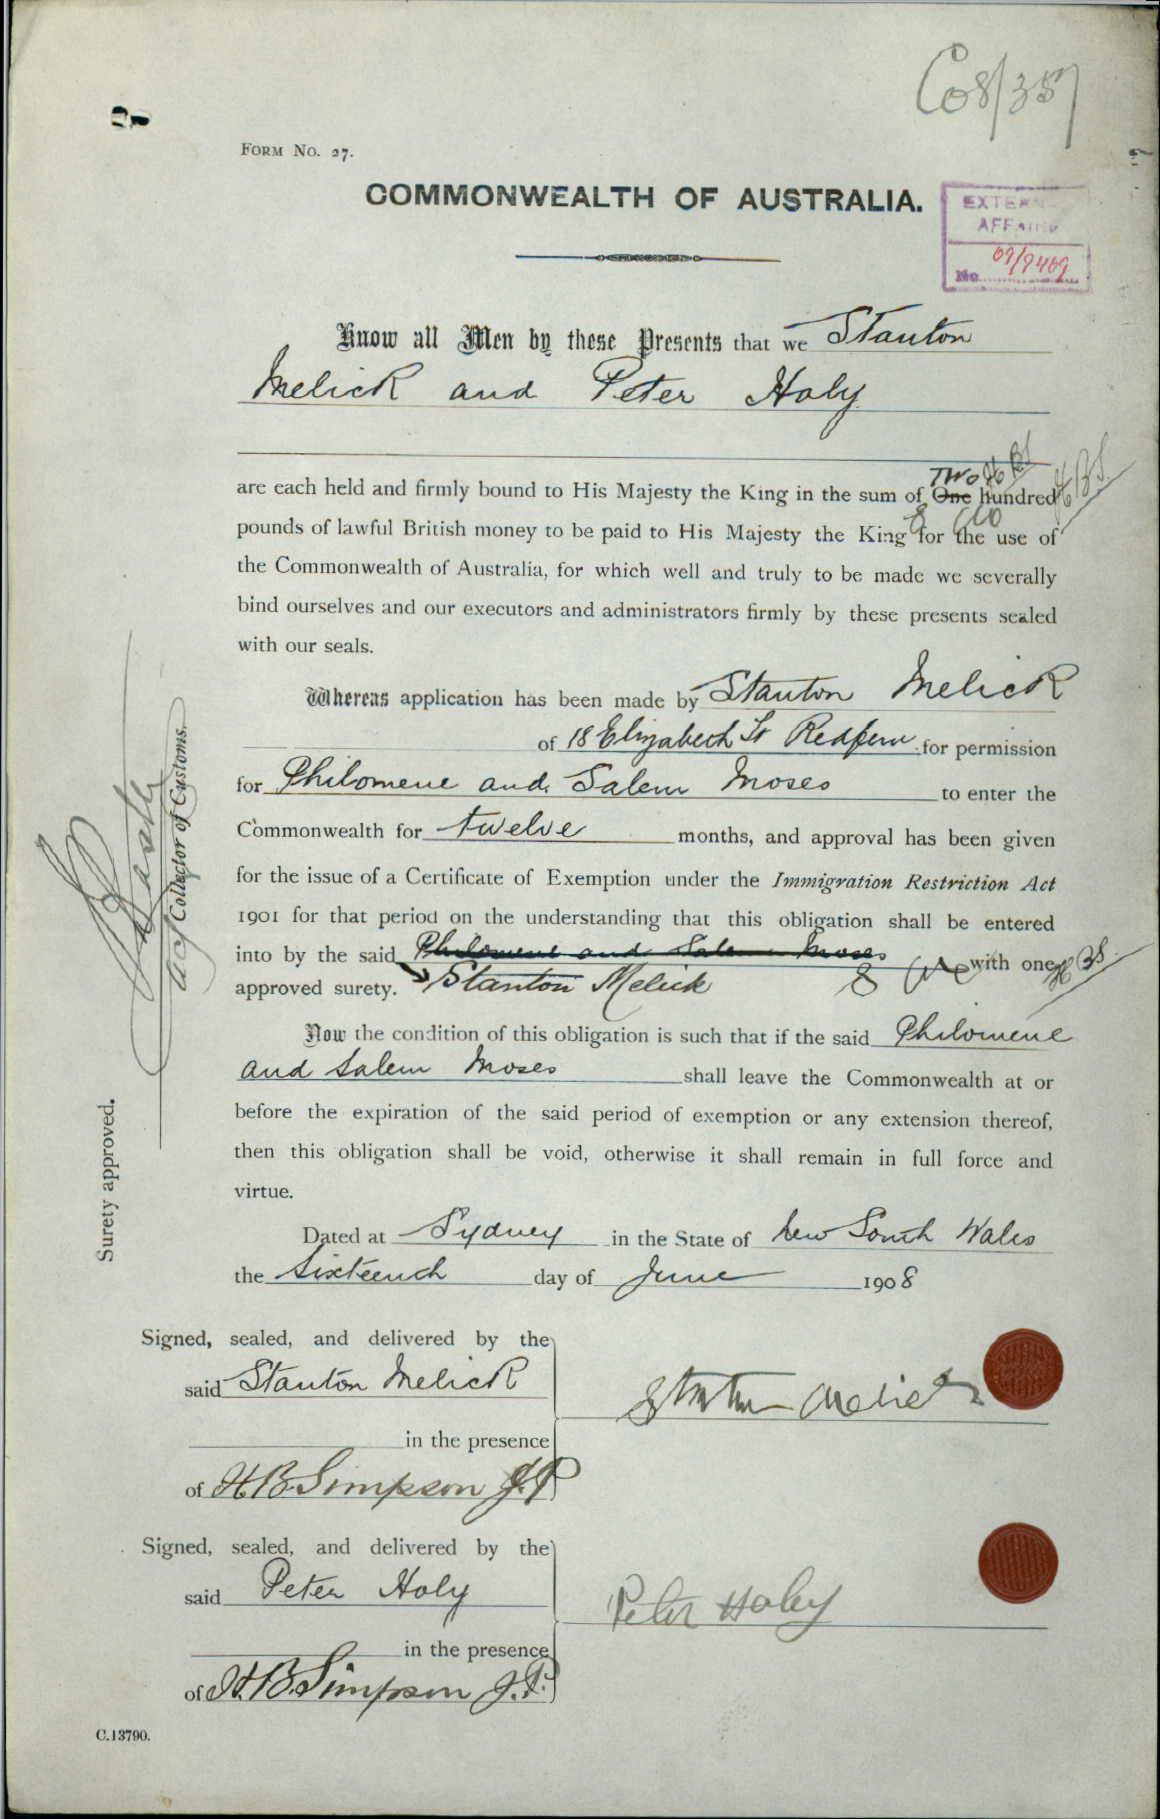 Co8/357
FORM No. 27.
COMMONWEALTH OF AUSTRALIA.
EXTERNAL
AFFAIRS
No. 09/9409
Know all Men by these Presents that we Stanton
Melick and Peter Holy
Two H B S
are each held and firmly bound to His Majesty the King in the sum of One hundred H B S
pounds of lawful British money to be paid to His Majesty the King for the use of
the Commonwealth of Australia, for which well and truly to be made we severally
bind ourselves and our executors and administrators firmly by these presents sealed
with our seals.
Whereas application has been made by Stanton Melick
of 18 Elizabeth St Redfern for permission
for Philomene and Salem Moses to enter the
Commonwealth for twelve months, and approval has been given
for the issue of a Certificate of Exemption under the Immigration Restriction Act
1901 for that period on the understanding that this obligation shall be entered
into by the said Philomene and Salem Moses with one H B S
approved surety. Stanton Melick
Now the condition of this obligation is such that if the said Philomene
and Salem Moses shall leave the Commonwealth at or
before the expiration of the said period of exemption or any extension thereof,
then this obligation shall be void, otherwise it shall remain in full force and
virtue.
Dated at Sydney in the State of New South Wales
the Sixteenth day of June 1908
Signed, sealed, and delivered by the
said Stanton Melick
Stanton Melick
in the presence
of H B Simpson J.P
Signed, sealed, and delivered by the
said Peter Holy
Peter Holy
in the presence
of H. B. Simpson J.P.
C.13790.
Surety approved.
Collector of Customs.